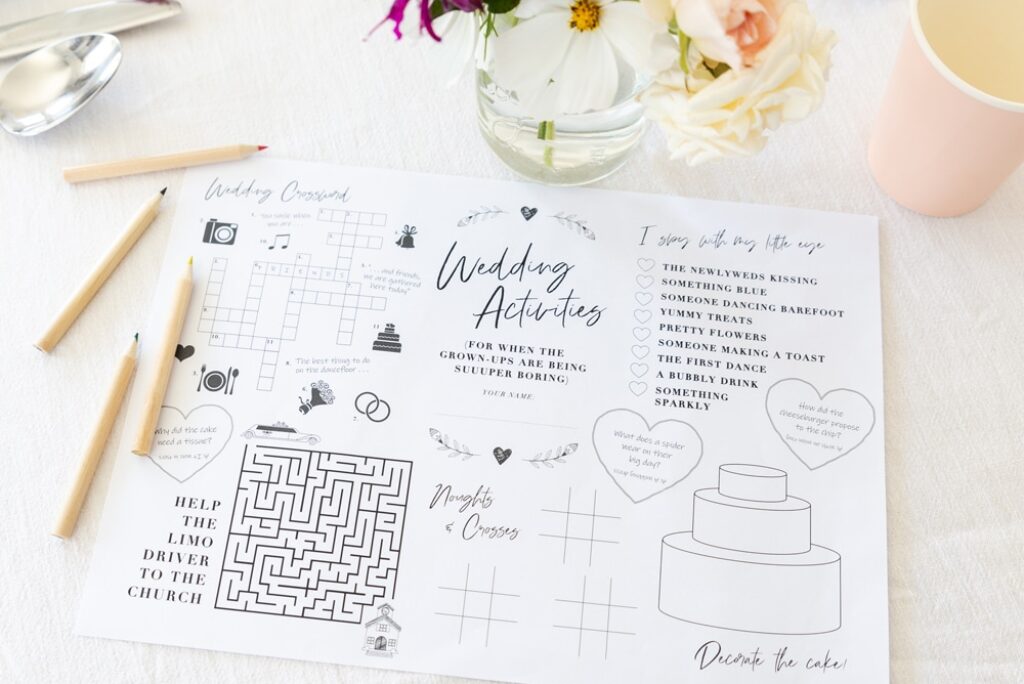 Wedding Crossword
1. You smile when
you are . . .
2.
10.
FRIENDS
5. ". . . and friends,
we are gathered
here today"
11.
8. The best thing to do
on the dancefloor . . .
3.
7.
Why did the cake
need a tissue?
HELP
THE
LIMO
DRIVER
TO THE
CHURCH
Wedding
Activities
(FOR WHEN THE
GROWN-UPS ARE BEING
SUUUPER BORING)
YOUR NAME:
Noughts
& Crosses
I spy with my little eye
THE NEWLYWEDS KISSING
SOMETHING BLUE
SOMEONE DANCING BAREFOOT
YUMMY TREATS
PRETTY FLOWERS
SOMEONE MAKING A TOAST
THE FIRST DANCE
A BUBBLY DRINK
SOMETHING
SPARKLY
What does a spider
wear on their
big day?
How did the
cheeseburger propose
to the chip?
Decorate the cake!